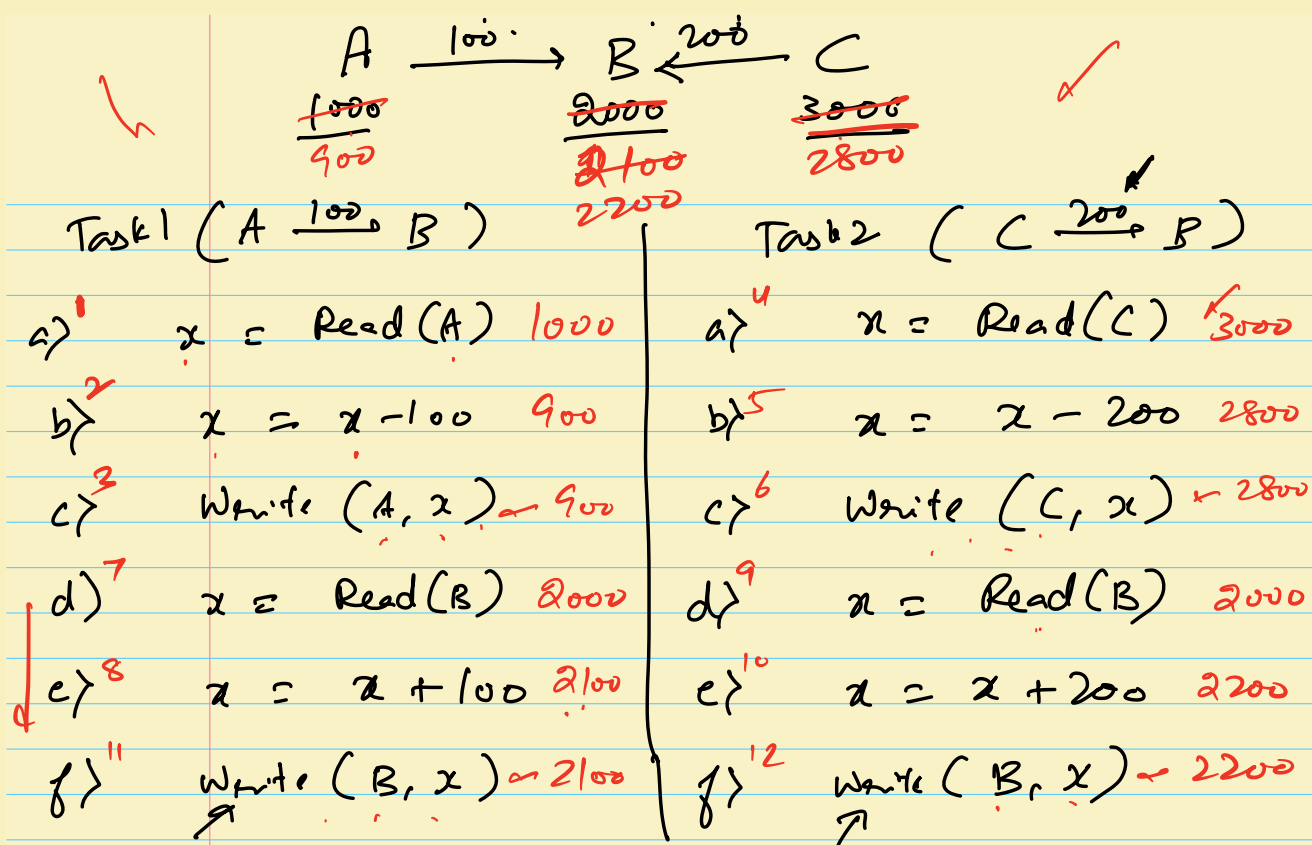 A 100 → B ← 200 C
1000 2000 3000
900 2100 2800
2200
Task1 ( A 100→ B )
a) 1 x = Read(A) 1000
b) 2 x = x - 100 900
c) 3 Write (A, x) 900
d) 7 x = Read(B) 2000
e) 8 x = x + 100 2100
f) 11 Write (B, x) 2100
Task2 ( C 200→ B )
a) 4 x = Read(C) 3000
b) 5 x = x - 200 2800
c) 6 Write (C, x) ← 2800
d) 9 x = Read(B) 2000
e) 10 x = x + 200 2200
f) 12 Write (B, x) 2200